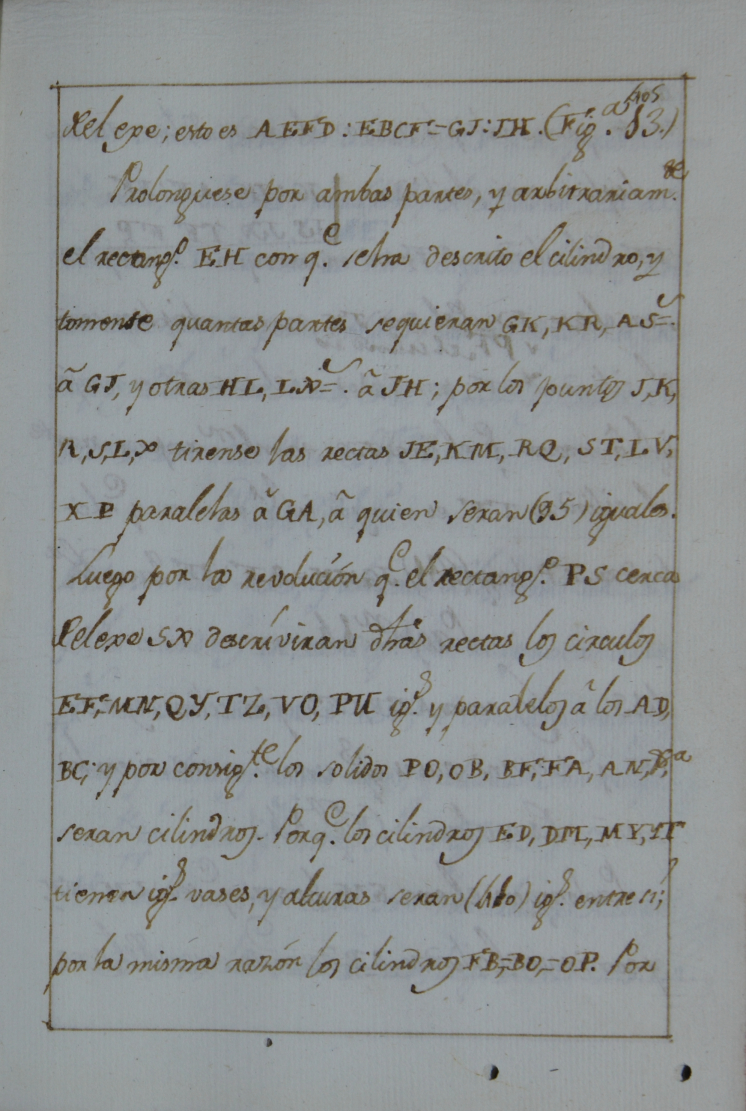 del exe; esto es AEFD : EBCF = GJ : JH. (Fig.ª 13.)
Prolonguese por ambas partes, y arbitrariam.te
el rectang.º EH con q.e se ha descrito el cilindro, y
tomense quantas partes se quieran GK, KR, RS=.
â GJ, y otras HL, LX=. â JH; por los puntos J, K,
R, S, L, X tirense las rectas JE, KM, RQ, ST, LV,
XP paralelas â GA, â quien seran (95) iguales.
Luego por la revolución q.e el rectang.º PS cerca
del exe SX descríviran dhas rectas los circulos
EF, MN, QY, TZ, VO, PU ig.s y paralelos â los AD,
BC; y por consig.te los solidos PO, OB, BF, FA, AN, &.a
seran cilindros. Porq.e los cilindros ED, DM, MY, YT
tienen ig.s vases, y alturas seran (410) ig.s entre si;
por la misma razón los cilindros FB,=BO,=OP. Por